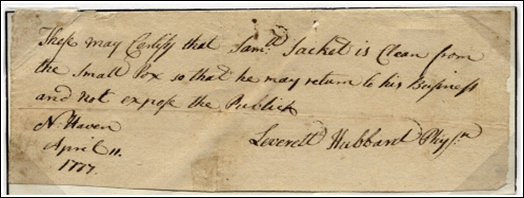 These may Certify that Sam.ll Sacket is Clean from
the Small Pox so that he may return to his Business
and not expose the Publick
N. Haven
April 11.
1777.
Leverett Hubbard Phys.n